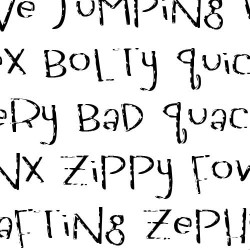 ve JUMPING
ex BOLTY QUIC
ery BAD QUAC
NX ZIPPY FOW
AFTING ZEPH